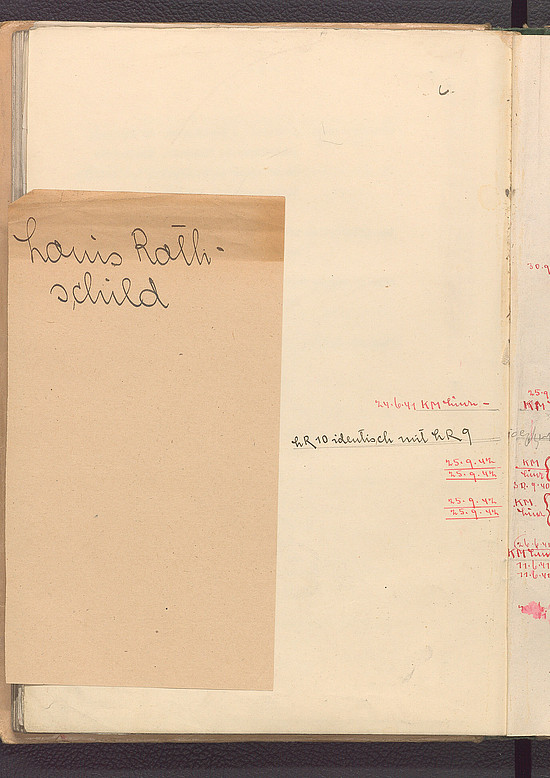 6.
Louis Roth-
schild
24.6.41 KM Linz. -
LR 10 identisch mit LR 9
25.9.42
25.9.42
25.9.42
25.9.42
30.9
25.9
KM
KM
Linz
30.9.40
KM
Linz
26.6.40
KM Linz
11.6.41
11.6.40